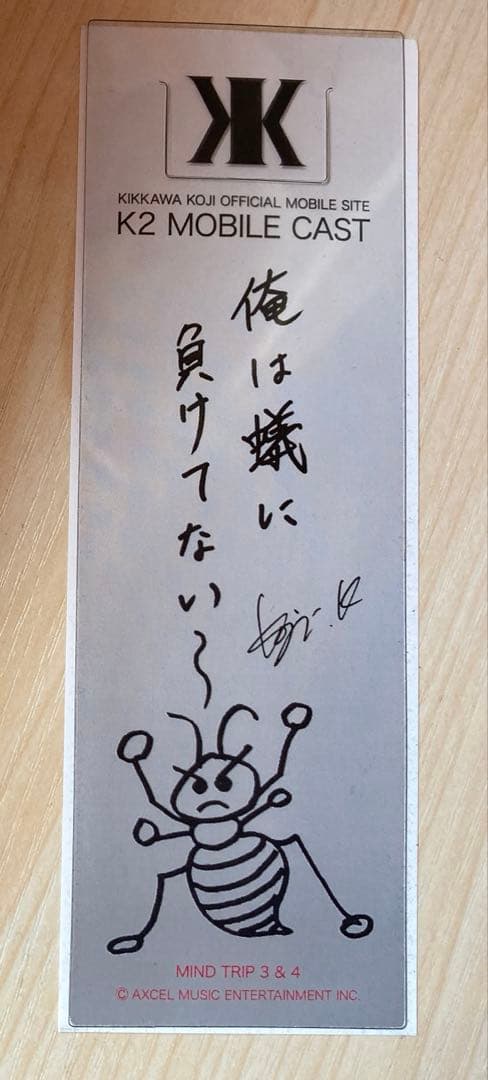 KK
KIKKAWA KOJI OFFICIAL MOBILE SITE
K2 MOBILE CAST
俺は蟻に
負けてない〜
Koji.K
MIND TRIP 3 & 4
© AXCEL MUSIC ENTERTAINMENT INC.